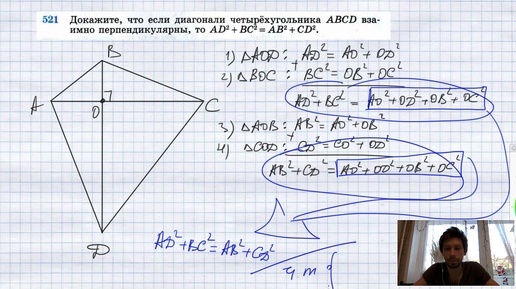 521 Докажите, что если диагонали четырёхугольника ABCD вза-
имно перпендикулярны, то AD² + BC² = AB² + CD².
B
A
O
C
D
1) △AOD: AD² = AO² + OD²
+
2) △BOC: BC² = OB² + OC²
AD² + BC² = AO² + OD² + OB² + OC²
3) △AOB: AB² = AO² + OB²
+
4) △COD: CD² = CO² + OD²
AB² + CD² = AO² + OD² + OB² + OC²
AD² + BC² = AB² + CD²
ч.т.